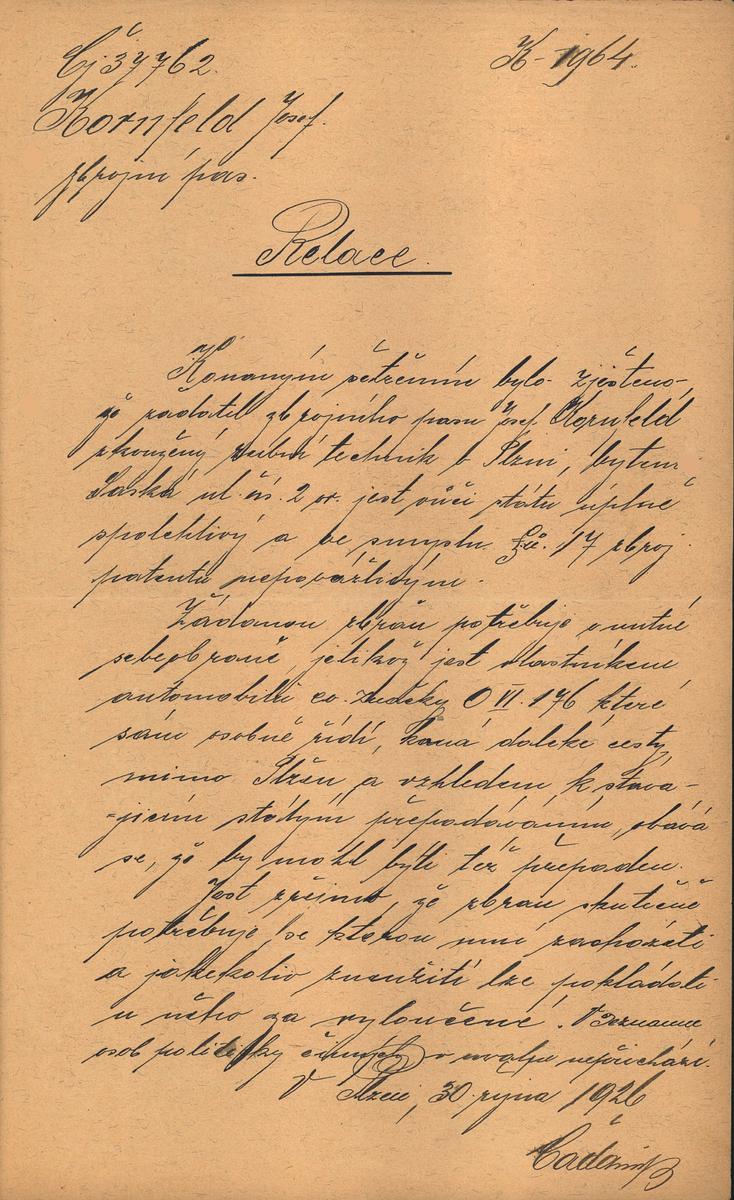 Čj. 37762.
K-1964.
Kornfeld Josef.
zbrojní pas.
Relace.
Konaným šetřením bylo zjištěno,
že žadatel zbrojního pasu Josef Kornfeld
zkoušený zubní technik v Plzni, bytem
Saská ul. čís. 2 or. jest vůči státu úplně
spolehlivý a ve smyslu 17 zbroj.
patentu nepovážlivým.
Žádanou zbraň potřebuje v nutné
sebeobraně, jelikož jest vlastníkem
automobilu zn. značky O VI. 176 které
sám osobně řídí, koná daleké cesty
mimo Plzeň, a vzhledem k stáva-
-jícím stálým přepadáváním, obává
se, že by mohl býti též přepaden.
Jest zřejmo, že zbraň skutečně
potřebuje, se kterou umí zacházeti
a jakékoliv zneužití lze pokládati
u něho za vyloučené. V seznamu
osob politicky činných v úvahu nepřichází.
V Plzni, 30. října 1926